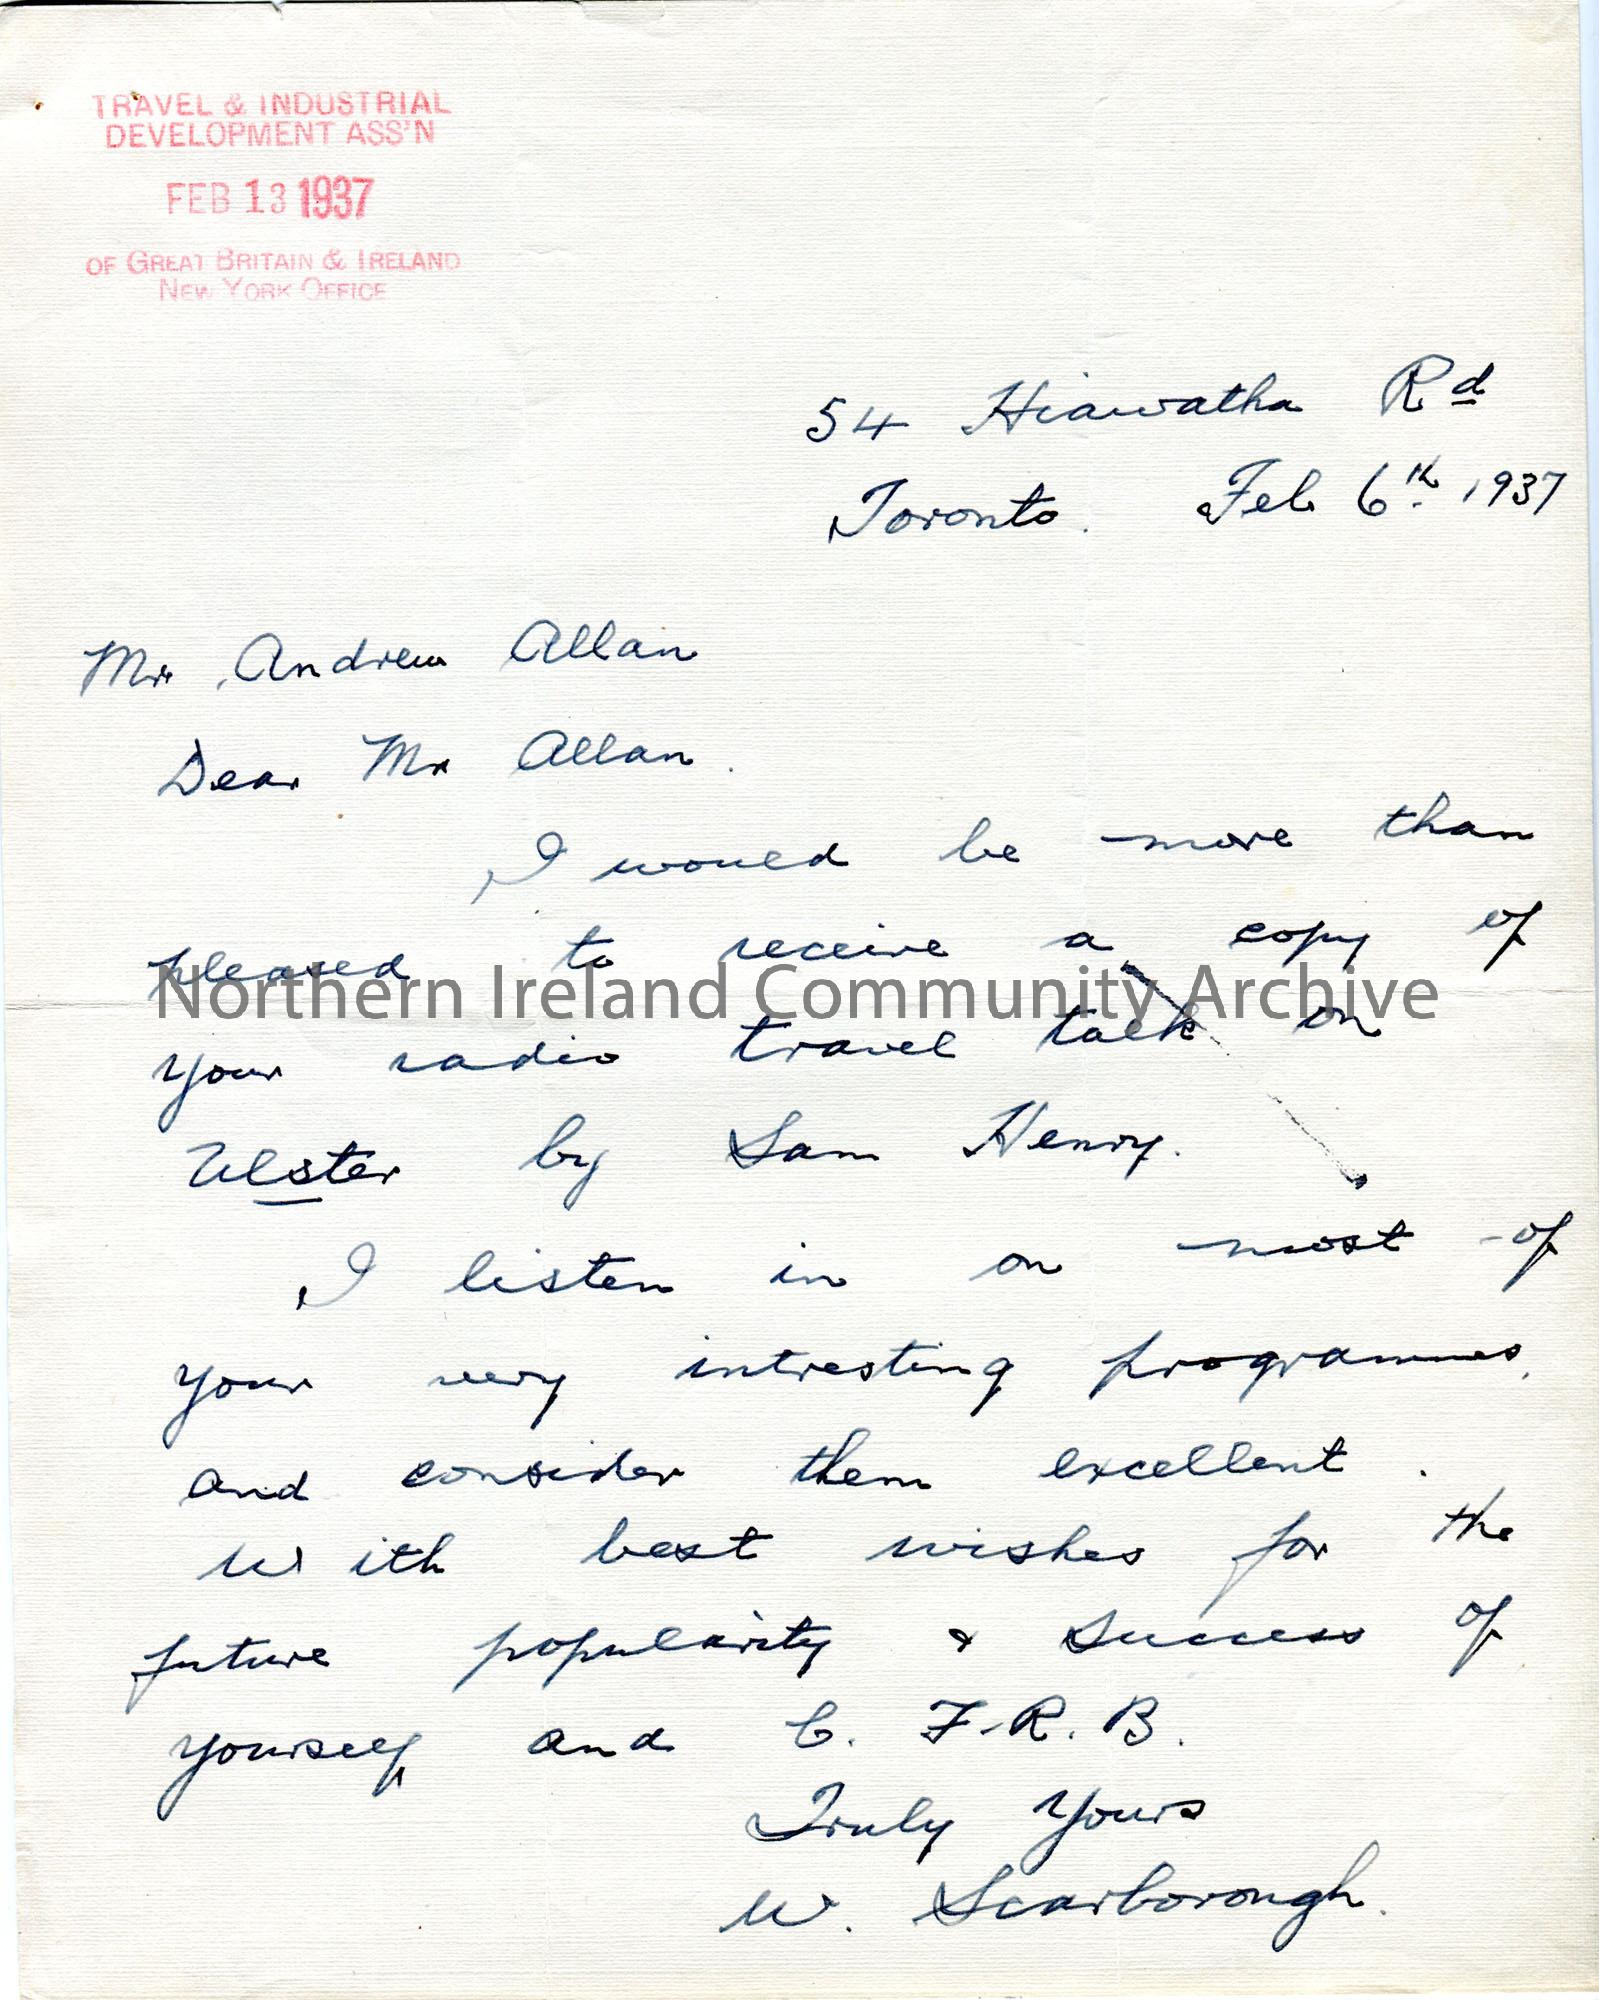 TRAVEL & INDUSTRIAL
DEVELOPMENT ASS'N
FEB 13 1937
OF GREAT BRITAIN & IRELAND
NEW YORK OFFICE
54 Hiawatha Rd
Toronto. Feb 6th 1937
Mr Andrew Allan
Dear Mr Allan.
I would be more than
pleased to receive a copy of
Northern Ireland Community Archive
your radio travel talk on
Ulster by Sam Henry.
I listen in on most of
your very intresting programmes,
and consider them excellent.
With best wishes for the
future popularity & success of
yourself and C. F. R. B.
Truly Yours
W. Scarborough.